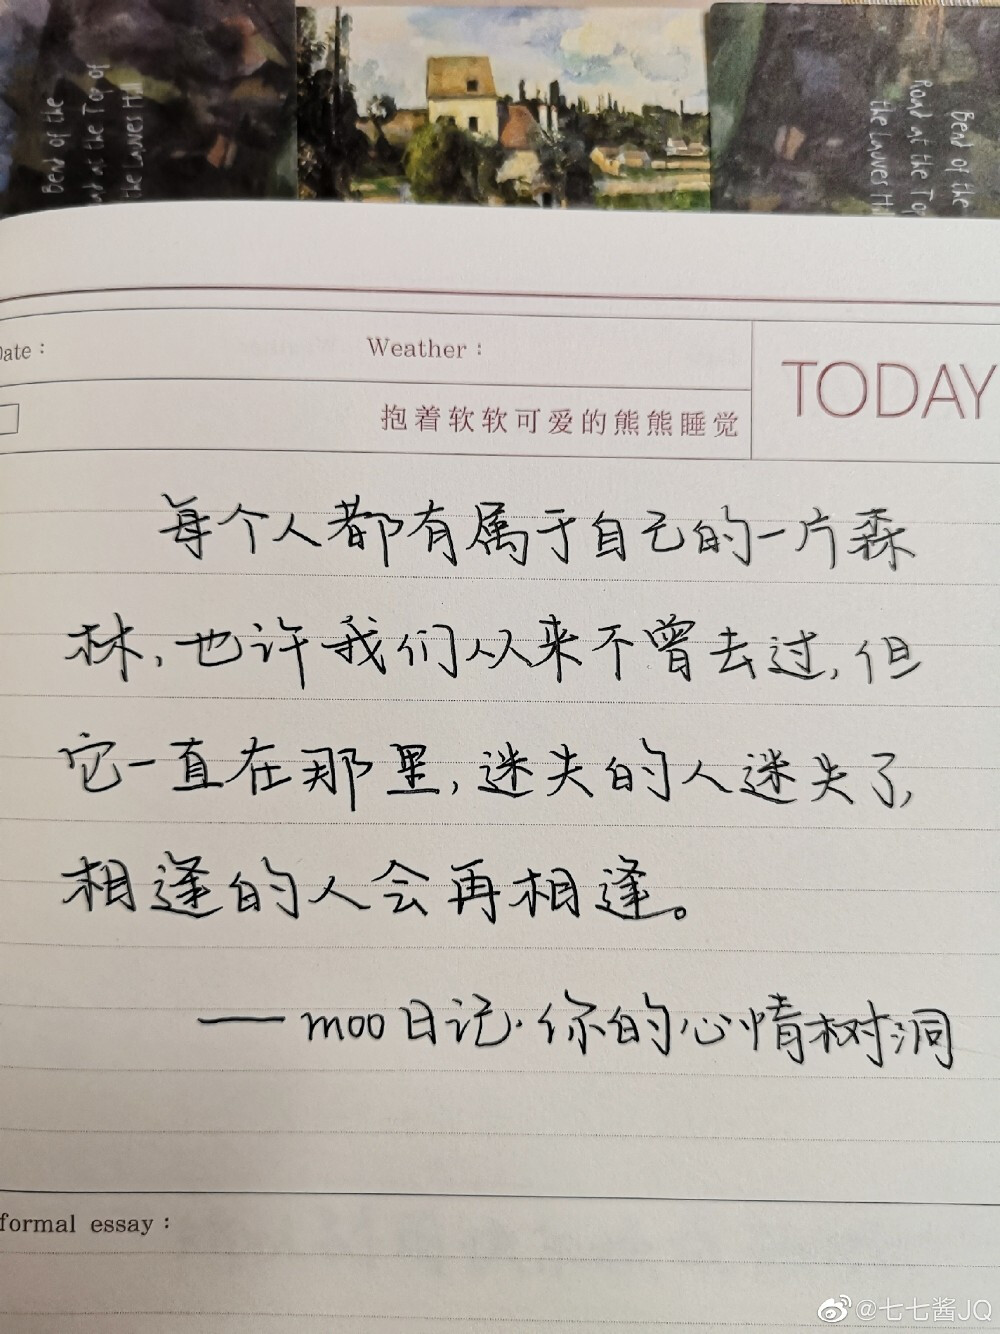 Bend of the
Road at the Top of
the Lauves Hill
Bend of the
Road at the Top
the Lauves Hill
Date：
Weather：
TODAY
抱着软软可爱的熊熊睡觉
每个人都有属于自己的一片森
林,也许我们从来不曾去过,但
它一直在那里,迷失的人迷失了,
相逢的人会再相逢。
——moo日记·你的心情树洞
formal essay：
@七七酱JQ